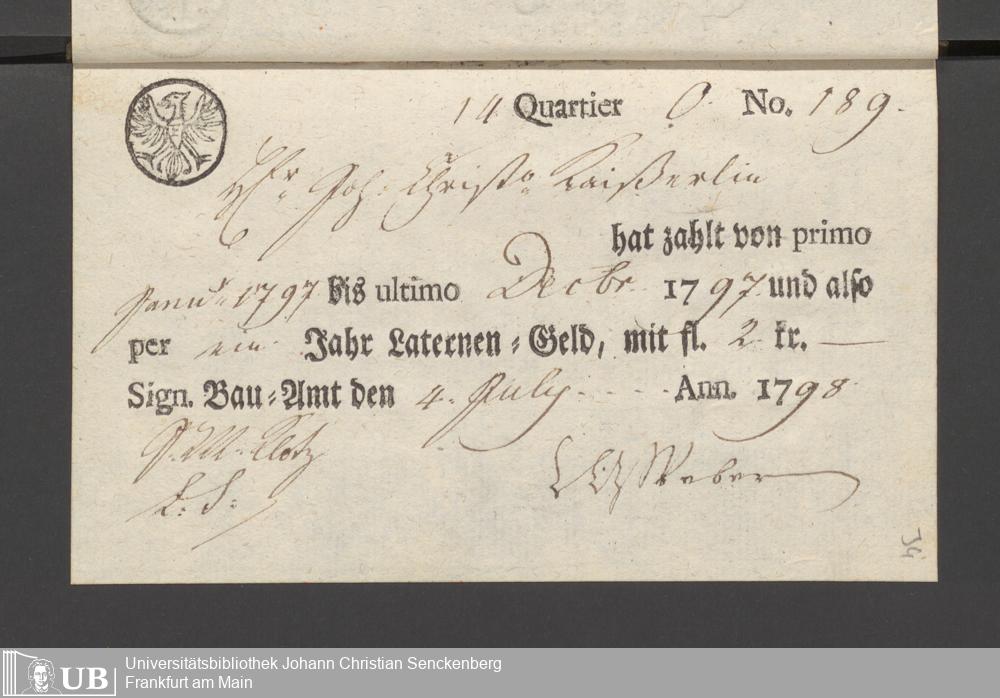 14 Quartier O. No. 189.
Joh: Christo Kaißerlin
hat zahlt von primo
Janu: 1797 bis ultimo Decbr. 1797. und also
per ein Jahr Laternen-Geld, mit fl. 2. kr. —
Sign. Bau-Amt den 4. July Ann. 1798.
Klotz
Weber
34
UB
Universitätsbibliothek Johann Christian Senckenberg
Frankfurt am Main